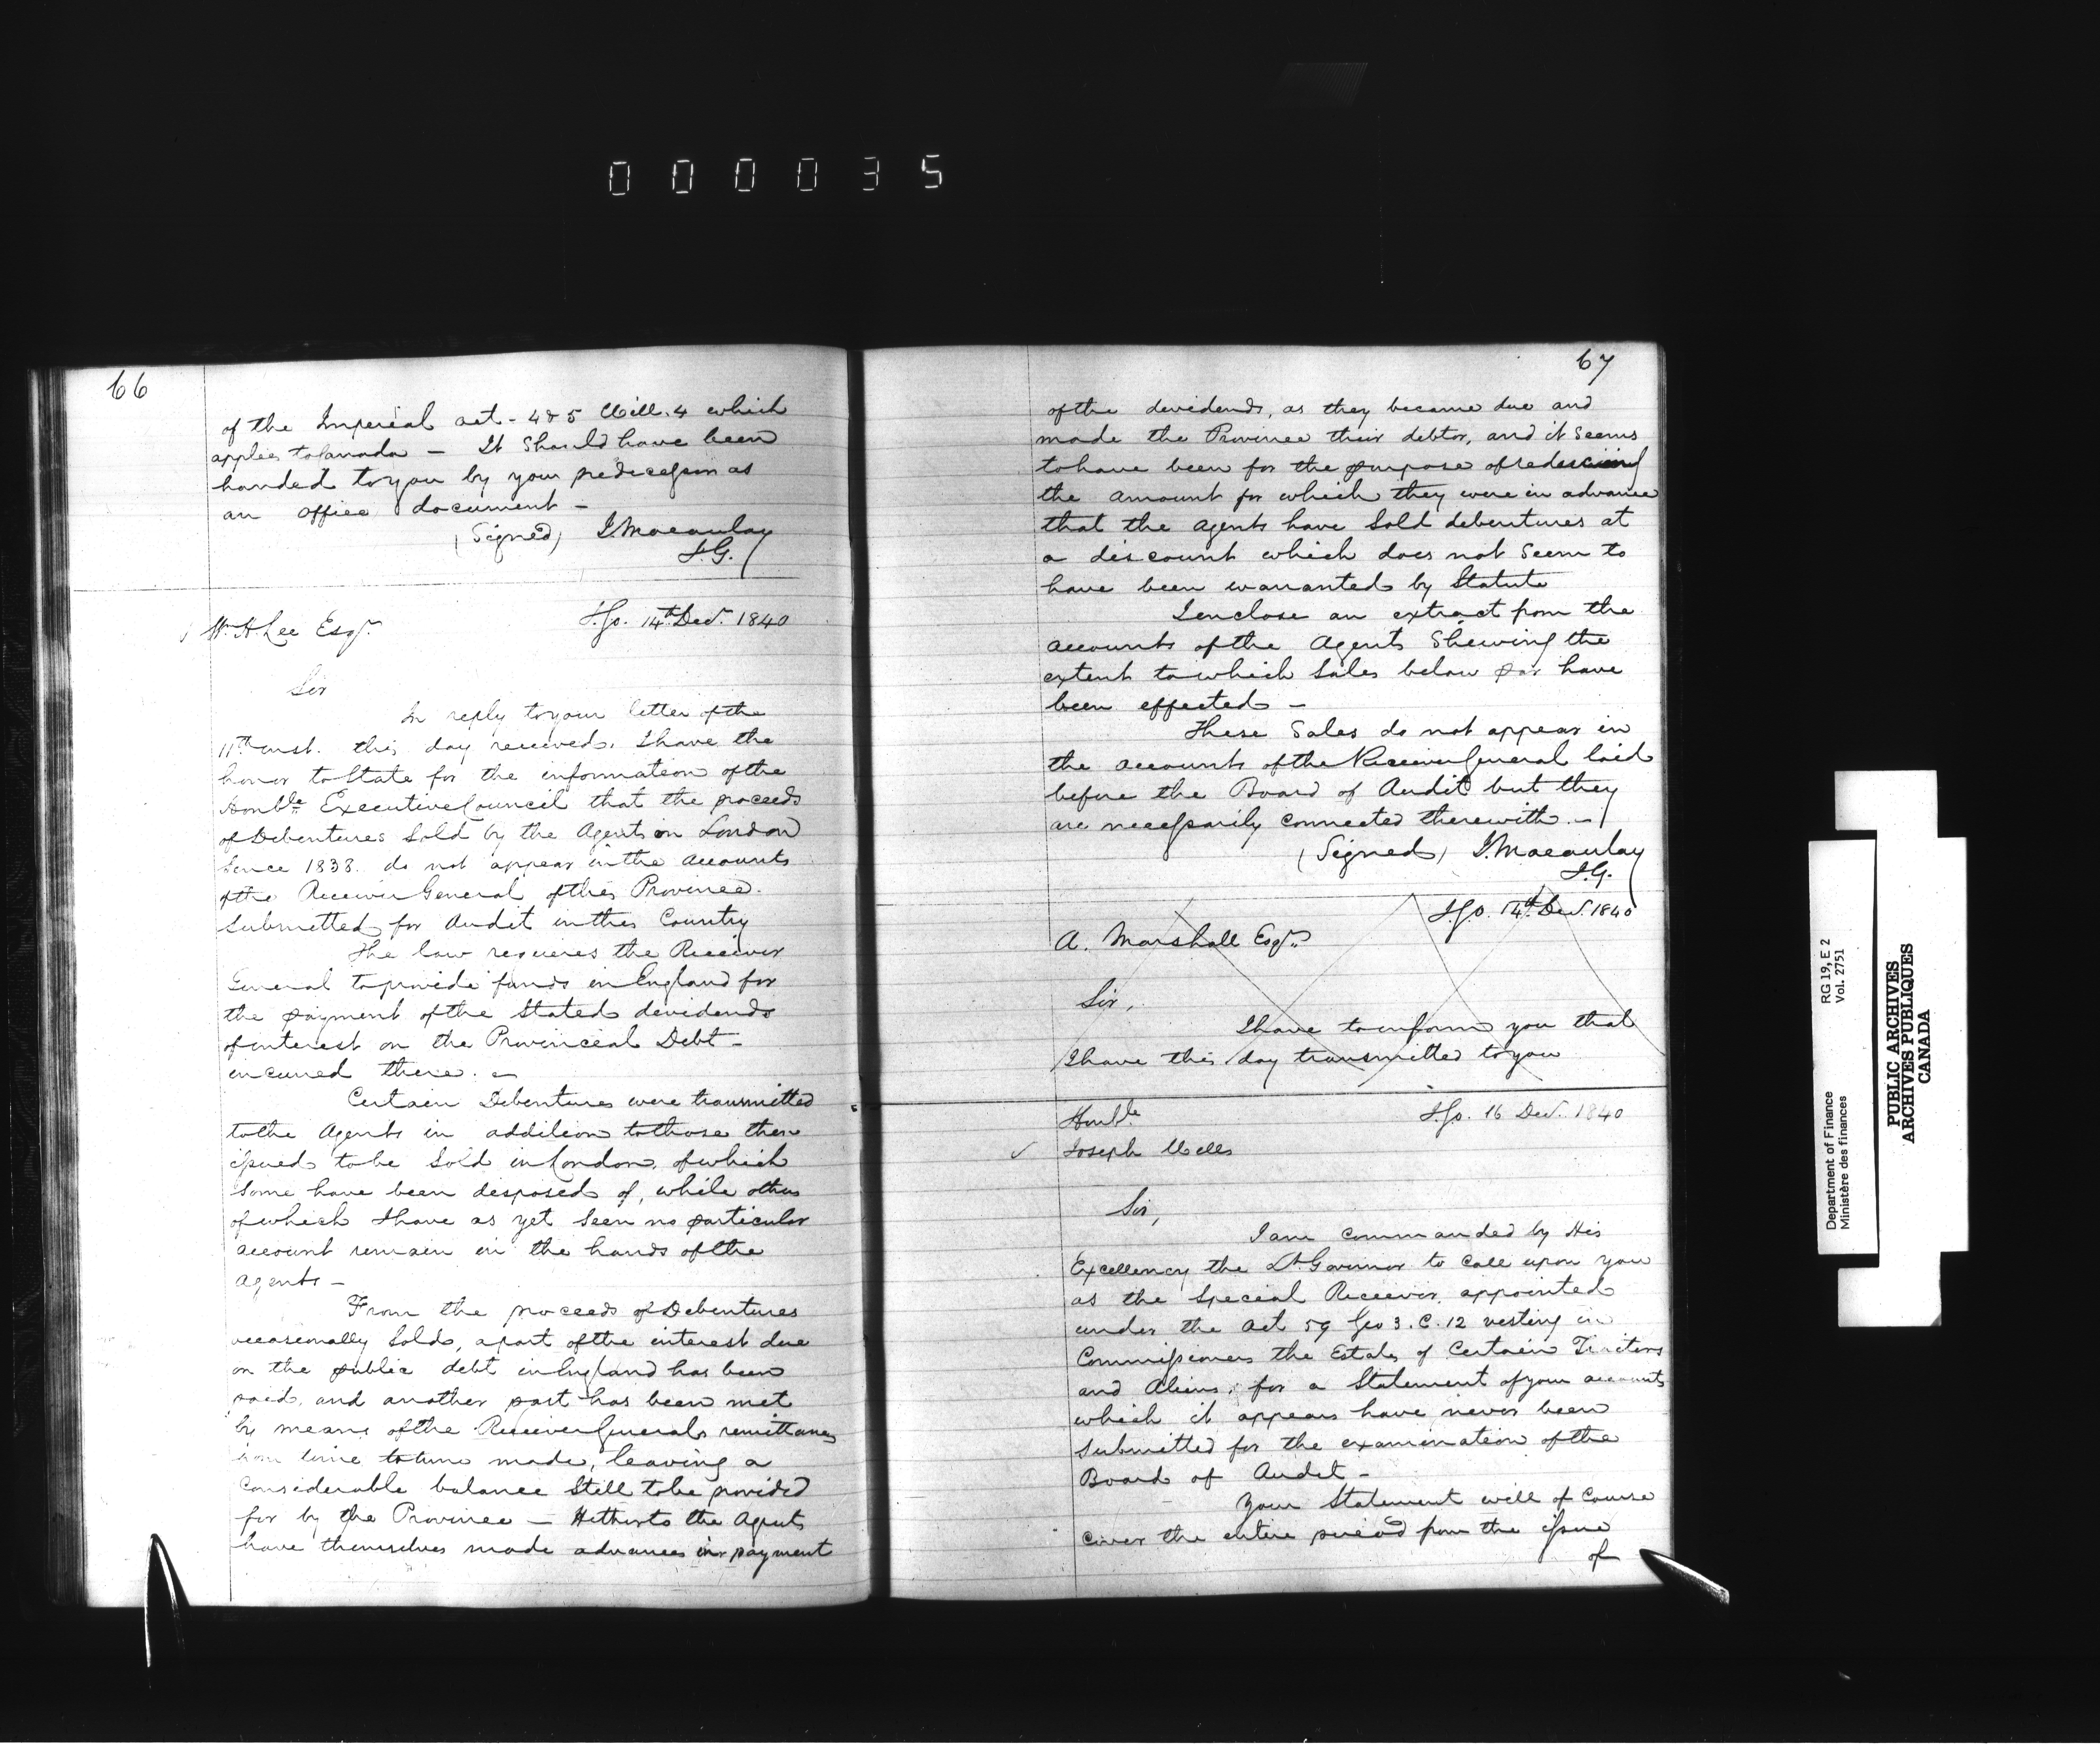 000035
66
of the Imperial act - 4 & 5 Will. 4 which
applies to Canada - It Should have been
handed to you by your predecessor as
an office document -
(Signed) J. Macaulay
I.G.
Wm. H. Lee Esqr.
I.G.O. 14th Decr. 1840
Sir
In reply to your letter of the
11th inst. this day received, I have the
honor to State for the information of the
Honble. Executive Council that the proceeds
of Debentures Sold by the Agents in London
Since 1838 do not appear in the Accounts
of the Receiver General of this Province
Submitted for Audit in this Country
The law requires the Receiver
General to provide funds in England for
the payment of the Stated devidends
of interest on the Provincial Debt -
incurred there. -
Certain Debentures were transmitted
to the Agents in addition to those then
issued to be Sold in London, of which
Some have been disposed of, while others
of which I have as yet Seen no particular
account remain in the hands of the
Agents -
From the proceeds of Debentures
occasionally Sold, a part of the interest due
on the public debt in England has been
paid, and another part has been met
by means of the Receiver Generals remittances
from time to time made, leaving a
Considerable balance Still to be provided
for by the Province - Hitherto the Agents
have themselves made advances in payment
67
of the devidends, as they became due and
made the Province their debtor, and it Seems
to have been for the purpose of
the amount for which they were in advance
that the Agents have Sold debentures at
a discount which does not Seem to
have been warranted by Statute
I enclose an extract from the
accounts of the Agents Shewing the
extent to which Sales below par have
been effected -
These Sales do not appear in
the accounts of the Receiver General laid
before the Board of Audit but they
are necessarily connected therewith. -
(Signed) J. Macaulay
I.G.
I.G.O. 14th Decr. 1840
A. Marshall Esqr.
Sir,
I have to inform you that
I have this day transmitted to you
Honble.
I.G.O. 16 Decr. 1840
✓ Joseph Wells
Sir,
I am commanded by His
Excellency the Lt. Governor to call upon you
as the Special Receiver, appointed
under the Act 59 Geo 3. C. 12 vesting in
Commissioners the Estates of Certain Traitors
and Aliens, for a Statement of your accounts
which it appears have never been
Submitted for the examination of the
Board of Audit -
Your Statement will of Course
cover the entire period from the issue
of
RG 19, E 2
Vol. 2751
Department of Finance
Ministère des finances
PUBLIC ARCHIVES
ARCHIVES PUBLIQUES
CANADA